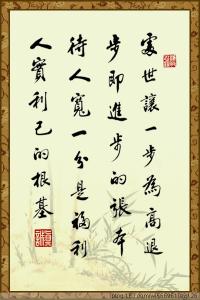 處世讓一步為高退
步即進步的張本
待人寬一分是福利
人實利己的根基